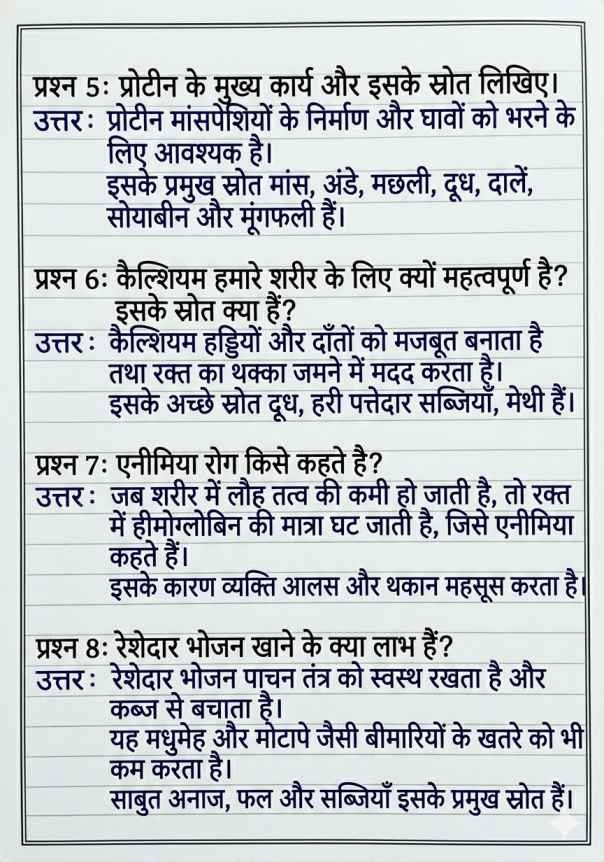 प्रश्न 5: प्रोटीन के मुख्य कार्य और इसके स्रोत लिखिए।
उत्तर : प्रोटीन मांसपेशियों के निर्माण और घावों को भरने के
लिए आवश्यक है।
इसके प्रमुख स्रोत मांस, अंडे, मछली, दूध, दालें,
सोयाबीन और मूंगफली हैं।
प्रश्न 6: कैल्शियम हमारे शरीर के लिए क्यों महत्वपूर्ण है?
इसके स्रोत क्या हैं?
उत्तर : कैल्शियम हड्डियों और दाँतों को मजबूत बनाता है
तथा रक्त का थक्का जमने में मदद करता है।
इसके अच्छे स्रोत दूध, हरी पत्तेदार सब्जियाँ, मेथी हैं।
प्रश्न 7: एनीमिया रोग किसे कहते है?
उत्तर : जब शरीर में लौह तत्व की कमी हो जाती है, तो रक्त
में हीमोग्लोबिन की मात्रा घट जाती है, जिसे एनीमिया
कहते हैं।
इसके कारण व्यक्ति आलस और थकान महसूस करता है।
प्रश्न 8: रेशेदार भोजन खाने के क्या लाभ हैं?
उत्तर : रेशेदार भोजन पाचन तंत्र को स्वस्थ रखता है और
कब्ज से बचाता है।
यह मधुमेह और मोटापे जैसी बीमारियों के खतरे को भी
कम करता है।
साबुत अनाज, फल और सब्जियाँ इसके प्रमुख स्रोत हैं।